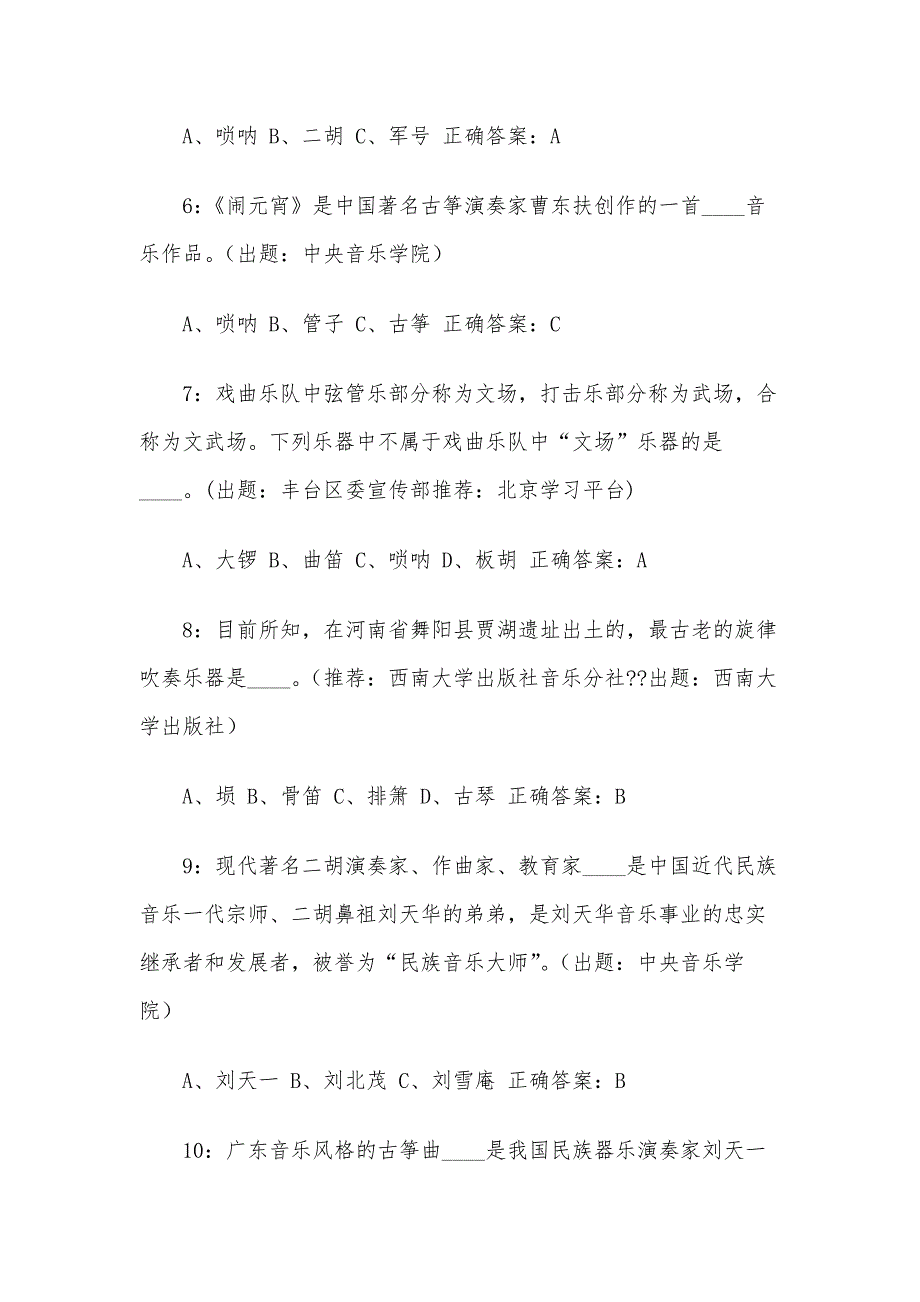 A、唢呐 B、二胡 C、军号 正确答案：A
6：《闹元宵》是中国著名古筝演奏家曹东扶创作的一首____音
乐作品。（出题：中央音乐学院）
A、唢呐 B、管子 C、古筝 正确答案：C
7：戏曲乐队中弦管乐部分称为文场，打击乐部分称为武场，合
称为文武场。下列乐器中不属于戏曲乐队中“文场”乐器的是
____。(出题：丰台区委宣传部推荐：北京学习平台)
A、大锣 B、曲笛 C、唢呐 D、板胡 正确答案：A
8：目前所知，在河南省舞阳县贾湖遗址出土的，最古老的旋律
吹奏乐器是____。（推荐：西南大学出版社音乐分社??出题：西南大
学出版社）
A、埙 B、骨笛 C、排箫 D、古琴 正确答案：B
9：现代著名二胡演奏家、作曲家、教育家____是中国近代民族
音乐一代宗师、二胡鼻祖刘天华的弟弟，是刘天华音乐事业的忠实
继承者和发展者，被誉为“民族音乐大师”。（出题：中央音乐学
院）
A、刘天一 B、刘北茂 C、刘雪庵 正确答案：B
10：广东音乐风格的古筝曲____是我国民族器乐演奏家刘天一